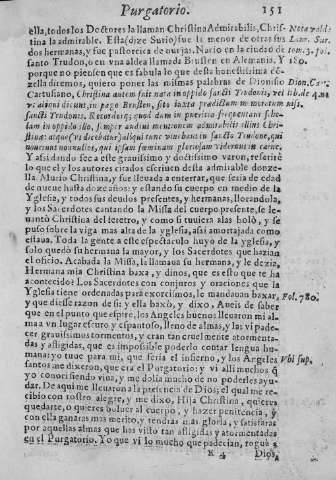 Purgatorio. 151
ella, todos los Doctores la llaman Christina Admirabilis, Chris-
tina la admirable. Essa (dize Surio) fue la menor de otras sus
dos hermanas, y fue pastorcica de ouejas. Nacio en la ciudad de
santo Trudon, o en vna aldea llamada Brusten en Alemania. Y
porque no piensen que es fabula lo que desta honestissima
zella diremos, quiero poner las mismas palabras de Dionisio
Cartusiano, Christina autem fuit nata in oppido sancti Trudonis,
Trudonis. Recordor quod dum in pueritia frequentans
lam in oppido
stina: in sancto Trudone, qui
Y assi dando fee a este grauissimo y doctissimo varon, referirè
lo que el y los autores citados escriuen desta admirable donze-
lla. Murio Christina, y fue lleuada a enterrar, que seria de edad
de nueue hasta doze años: y estando su cuerpo en medio de la
Yglesia, y todos sus deudos presentes, y hermanas, llorandola,
y los Sacerdotes cantando la Missa del cuerpo presente, se le-
uantò Christina del feretro, y como si tuuiera alas bolò, y se
puso sobre la viga mas alta de la yglesia, assi amortajada como
estaua. Toda la gente a este espectaculo huyo de la Yglesia, y
solo quedò su hermana la mayor, y los Sacerdotes que hazian
el oficio. Acabada la Missa, la llamaua su hermana, y le dezia,
Hermana mia Christina baxa, y dinos, que es esto que te ha
acontecido? Los Sacerdotes con conjuros y oraciones que la
Yglesia tiene ordenadas para exorcismos, le mandauan baxar,
y que diesse razon de si: y ella baxò, y dixo, Aueis de saber
que en el punto que espirè, los Angeles buenos lleuaron mi al
ma a vn lugar escuro y espantoso, lleno de almas, y las vi pade-
cer grauissimos tormentos, y eran tan cruelmente atormenta-
das y afligidas, que es impossible poderlo contar lengua hu-
mana: yo tuue para mi, que seria el infierno, y los Angeles
santos me dixeron, que era el Purgatorio: y vi alli muchos q̃
yo conoci siendo viua, y me dolia mucho de no poderles ayu-
dar. De aqui me lleuaron a la presencia de Dios; el qual me re-
cibio con rostro alegre, y me dixo, Hija Christina, quieres
quedarte, o quieres boluer al cuerpo, y hazer penitencia, y
con ella ganaras mas merito, y tendras mas gloria, y satisfaras
por aquellas almas que has visto tan afligidas y atormentadas
en el Purgatorio. Yo que vi lo mucho que padecian, roguè a
K 4 Dios,
Fol. 780.
Vbi sup.